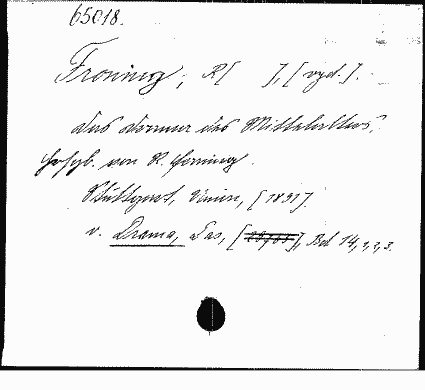 65018.
Froning, R[ ], [vyd.].
Das Drama des Mittelalters,
hrsgb. von R. Froning.
Stuttgart, Union, [1891].
v. Drama, Das, [ ], Bd 14,1,2,3.